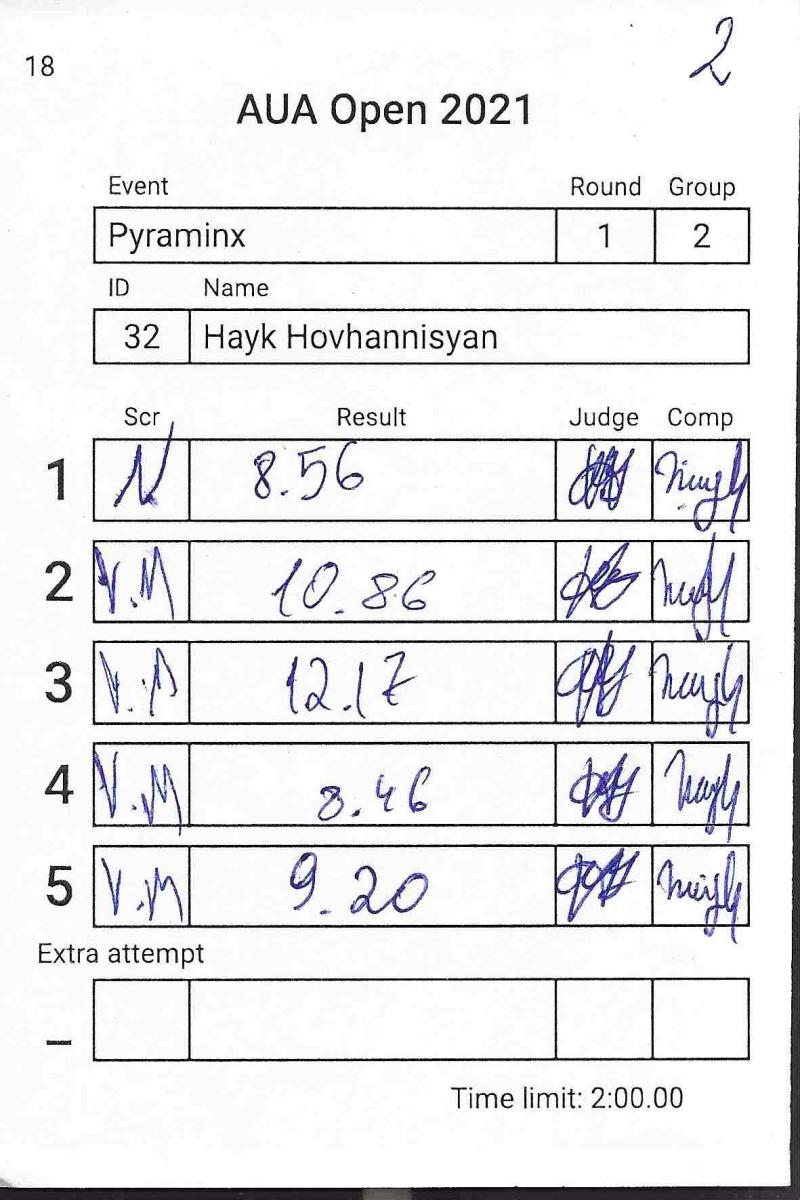 2
18
AUA Open 2021
Event Round Group
Pyraminx 1 2
ID Name
32 Hayk Hovhannisyan
Scr Result Judge Comp
1 8.56
2 V.M 10.86
3 12.17
4 V.M 8.46
5 V.M 9.20
Extra attempt
_
Time limit: 2:00.00